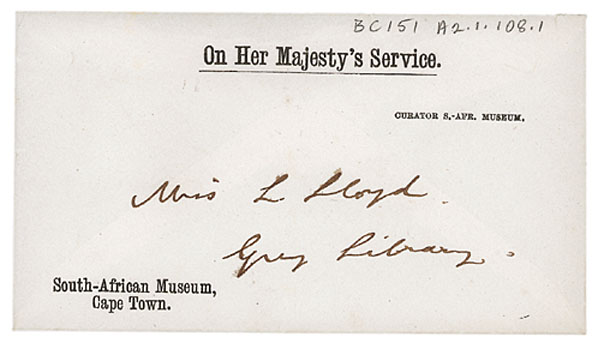 BC151 A2.1.108.1
On Her Majesty's Service.
CURATOR S.-AFR. MUSEUM.
Miss L Lloyd.
Grey Library.
South-African Museum,
Cape Town.